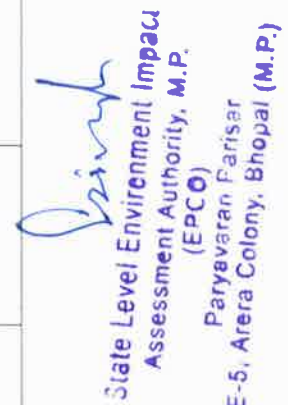 State Level Environment Impact
Assessment Authority, M.P.
(EPCO)
Paryavaran Parisar
E-5, Arera Colony, Bhopal (M.P.)